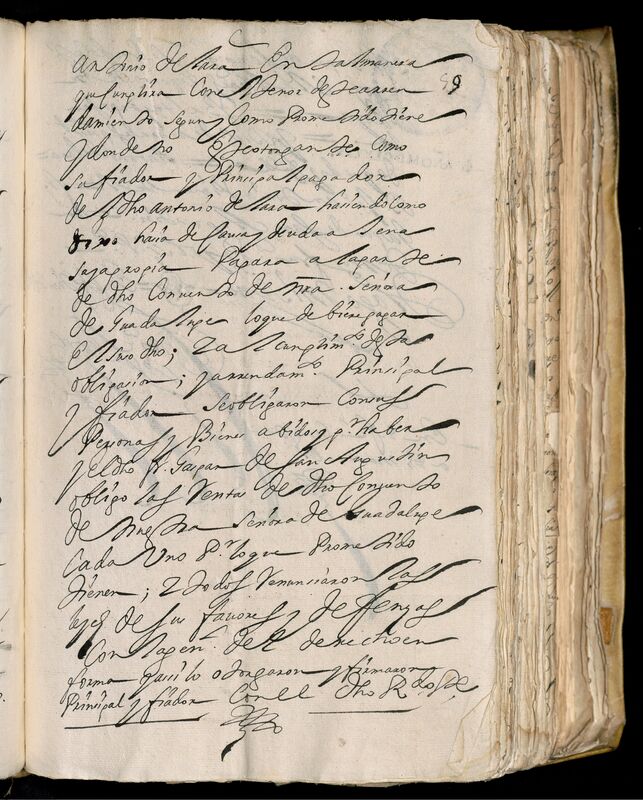 Antonio de lara En Salamanca
que cumplira Con el tenor de este arren
damiento segun y Como Prometido tiene
y donde no El otorgante Como
su fiador y Principal pagador
de dho antonio de lara haciendo Como
hiço haçia de Causa y deuda ajena
suya propia Pagara a la parte
de dho Convento de nra Señora
de Guadalupe lo que debiere pagar
El suso dho; Y al cumplimto de esta
obligasion; y arrendamto Principal
y fiador se obligaron Con sus
Personas y Bienes abidos y pr haber
y el dho fr Gaspar de San Augustin
obligo las Rentas de dho Convento
de nuestra Señora de Guadalupe
Cada Uno Pr lo que Prometido
tienen; Y todos Renunciaron las
leyes de sus favores y deffensas
Con la gen.l del derecho en
forma y assi lo otorgaron y firmaron
Principal y fiador Con el dho